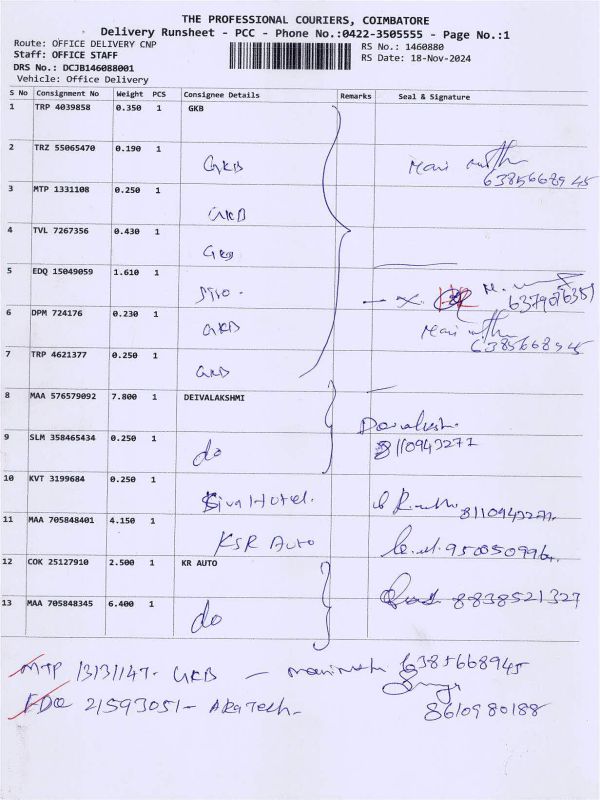 THE PROFESSIONAL COURIERS, COIMBATORE
Delivery Runsheet - PCC - Phone No.:0422-3505555 - Page No.:1
Route: OFFICE DELIVERY CNP
Staff: OFFICE STAFF
DRS No.: DCJB146088001
Vehicle: Office Delivery
RS No.: 1460880
RS Date: 18-Nov-2024
S No Consignment No Weight PCS Consignee Details Remarks Seal & Signature
1 TRP 4039858 0.350 1 GKB
2 TRZ 55065470 0.190 1 GKB 6385668945
3 MTP 1331108 0.250 1 GKB
4 TVL 7267356 0.430 1 GKB
5 EDQ 15049059 1.610 1
6 DPM 724176 0.230 1 GKB 6385668945
7 TRP 4621377 0.250 1 GKB
8 MAA 576579092 7.800 1 DEIVALAKSHMI
9 SLM 358465434 0.250 1 do 8110943271
10 KVT 3199684 0.250 1 Siva Hotel.
11 MAA 705848401 4.150 1 KSR Auto
12 COK 25127910 2.500 1 KR AUTO 8838521327
13 MAA 705848345 6.400 1 do
MTP 13131147- GKB - 6385668945
21593051- AkaTech-
8610980188